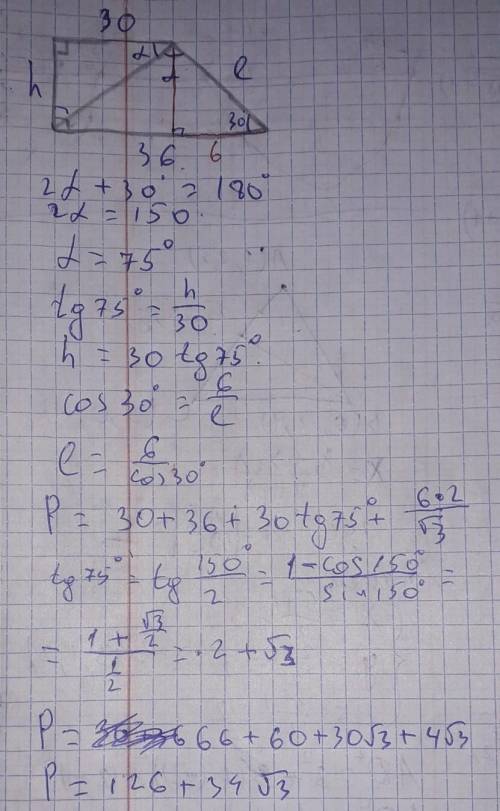 30
α α
h l
30°
36 6
2α + 30° = 180°
2α = 150
α = 75°
tg 75° = h/30
h = 30 tg 75°
cos 30° = 6/l
l = 6/cos 30°
P = 30 + 36 + 30 tg 75° + 6·2/√3
tg 75° = tg 150°/2 = (1 - cos 150°)/(sin 150°) =
= (1 + √3/2)/(1/2) = 2 + √3
P = 66 + 60 + 30√3 + 4√3
P = 126 + 34√3